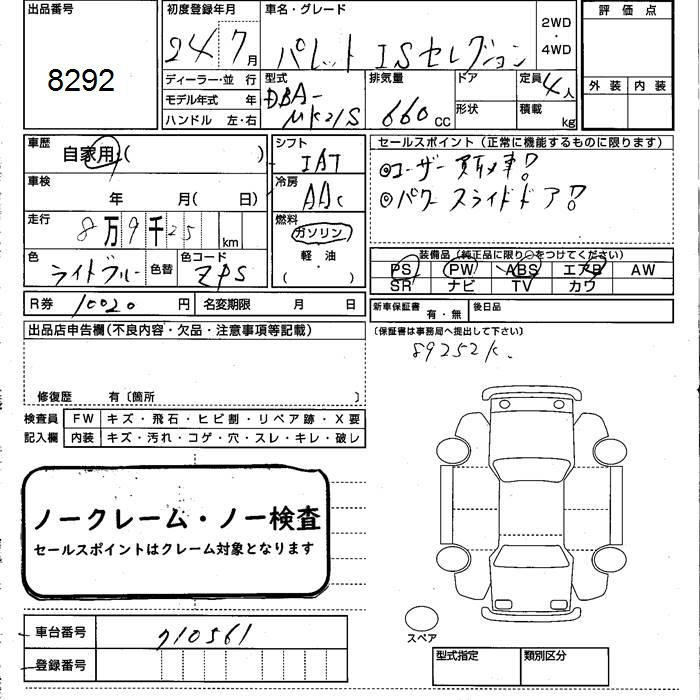 出品番号
8292
初度登録年月
24 7月
車名・グレード
パレット ISセレクション
2WD
・
4WD
評価点
外装 内装
ディーラー・並 行
モデル年式 年
ハンドル 左・右
型式
DBA-
MK21S
排気量
660cc
ドア
形状
定員
4人
積載
kg
車歴
自家用( )
シフト
IAT
セールスポイント(正常に機能するものに限ります)
◎ユーザー買取車!!
◎パワースライドドア!!
車検
年 月( 日)
冷房
AAC
走行
8万9千25 km
燃料
ガソリン
軽油
( )
色
ライトブルー
色替
色コード
ZPS
装備品(純正品に限り○をつけてください)
PS PW ABS エアB AW
SR ナビ TV カワ
R券 10020円
名変期限 月 日
新車保証書
有・無
後日品
(保証書は事務局へ提出して下さい)
89252K.
出品店申告欄(不良内容・欠品・注意事項等記載)
修復歴 有〔箇所 〕
検査員
記入欄
FW キズ・飛石・ヒビ割・リペア跡・X要
内装 キズ・汚れ・コゲ・穴・スレ・キレ・破レ
ノークレーム・ノー検査
セールスポイントはクレーム対象となります
スペア
車台番号 710561
登録番号
型式指定 類別区分